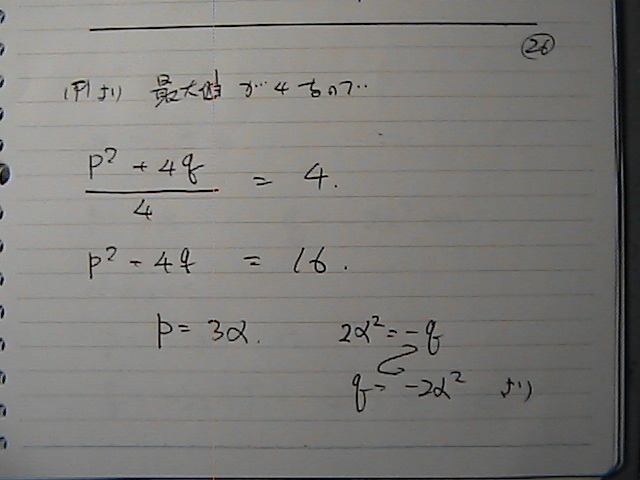 ㉖
(P1より) 最大値が4なので…
p² + 4q / 4 = 4.
p² - 4q = 16.
p = 3α. 2α² = -q
q = -2α² より